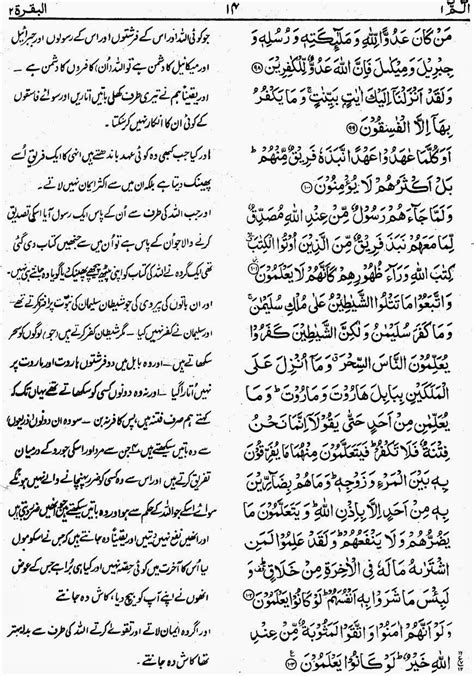 الٓمّٓ ١
١٤
البقرة ٢
مَنْ كَانَ عَدُوًّا لِّلّٰهِ وَمَلٰٓئِكَتِهٖ وَرُسُلِهٖ وَ
جِبْرِيْلَ وَمِيْكٰىلَ فَاِنَّ اللّٰهَ عَدُوٌّ لِّلْكٰفِرِيْنَ ٩٨
وَلَقَدْ اَنْزَلْنَاۤ اِلَيْكَ اٰيٰتٍۢ بَيِّنٰتٍ ۚ وَ مَا يَكْفُرُ
بِهَاۤ اِلَّا الْفٰسِقُوْنَ ٩٩
اَوَكُلَّمَا عٰهَدُوْا عَهْدًا نَّبَذَهٗ فَرِيْقٌ مِّنْهُمْ ؕ
بَلْ اَكْثَرُهُمْ لَا يُؤْمِنُوْنَ ١٠٠
وَلَمَّا جَآءَهُمْ رَسُوْلٌ مِّنْ عِنْدِ اللّٰهِ مُصَدِّقٌ
لِّمَا مَعَهُمْ نَبَذَ فَرِيْقٌ مِّنَ الَّذِيْنَ اُوْتُوا الْكِتٰبَ ۙ
كِتٰبَ اللّٰهِ وَرَآءَ ظُهُوْرِهِمْ كَاَنَّهُمْ لَا يَعْلَمُوْنَ ١٠١
وَاتَّبَعُوْا مَا تَتْلُوا الشَّيٰطِيْنُ عَلٰى مُلْكِ سُلَيْمٰنَ ۚ
وَمَا كَفَرَ سُلَيْمٰنُ وَلٰكِنَّ الشَّيٰطِيْنَ كَفَرُوْا
يُعَلِّمُوْنَ النَّاسَ السِّحْرَ ۗ وَمَاۤ اُنْزِلَ عَلَى
الْمَلَكَيْنِ بِبَابِلَ هَارُوْتَ وَ مَارُوْتَ ؕ وَ مَا
يُعَلِّمٰنِ مِنْ اَحَدٍ حَتّٰى يَقُوْلَاۤ اِنَّمَا نَحْنُ
فِتْنَةٌ فَلَا تَكْفُرْ ؕ فَيَتَعَلَّمُوْنَ مِنْهُمَا مَا يُفَرِّقُوْنَ
بِهٖ بَيْنَ الْمَرْءِ وَ زَوْجِهٖ ؕ وَمَا هُمْ بِضَآرِّيْنَ
بِهٖ مِنْ اَحَدٍ اِلَّا بِاِذْنِ اللّٰهِ ؕ وَ يَتَعَلَّمُوْنَ مَا
يَضُرُّهُمْ وَ لَا يَنْفَعُهُمْ ؕ وَ لَقَدْ عَلِمُوْا لَمَنِ
اشْتَرٰىهُ مَا لَهٗ فِى الْاٰخِرَةِ مِنْ خَلَاقٍ ؕ
وَ لَبِئْسَ مَا شَرَوْا بِهٖۤ اَنْفُسَهُمْ ؕ لَوْ كَانُوْا يَعْلَمُوْنَ ١٠٢
وَلَوْ اَنَّهُمْ اٰمَنُوْا وَ اتَّقَوْا لَمَثُوْبَةٌ مِّنْ عِنْدِ
اللّٰهِ خَيْرٌ ؕ لَوْ كَانُوْا يَعْلَمُوْنَ ١٠٣
جو کوئی اللہ اور اس کے فرشتوں اور اس کے رسولوں اور جبرائیل
اور میکائیل کا دشمن ہے تو اللہ اُن کافروں کا دشمن ہے۔
اور یقیناً ہم نے تیری طرف کھلی باتیں اتاریں اور سوائے فاسقوں
کے کوئی اُن کا انکار نہیں کرسکتا۔
اور کیا جب کبھی وہ کوئی عہد باندھتے ہیں انہی کا ایک فریق اُسے
پھینک دیتا ہے بلکہ ان میں سے اکثر ایمان نہیں لاتے۔
اور جب اللہ کی طرف سے اُن کے پاس ایک رسول آیا اسکی تصدیق
کرنے والا جو اُن کے پاس ہے تو ان میں سے جنھیں کتاب دی گئی تھی
ایک گروہ نے اللہ کی کتاب کو اپنی پیٹھوں پیچھے پھینک دیا گویا کہ وہ جانتے ہی نہیں۔
اور ان باتوں کی پیروی کی جو شیطان سلیمان کی نبوت پر افترا کرتے تھے
اور سلیمان نے کفر نہیں کیا۔ مگر شیطان کفر کرتے ہیں (جو) لوگوں کو سحر
سکھاتے ہیں۔ اور وہ بابل میں دو فرشتوں ہاروت اور ماروت پر
نہیں اتارا گیا۔ اور نہ وہ دونوں کسی کو سکھاتے تھے یہاں تک کہ کہتے
ہم صرف فتنہ ہیں، پس کافر نہ بن۔ سو وہ ان دونوں (ذریعوں)
سے وہ باتیں سیکھتے ہیں جن سے مرد اور اسکی جورو کے درمیان
تفریق کرتے ہیں۔ اور وہ اس سے کسی کو ضرر پہنچانے والے نہیں
سوائے اسکے جو اللہ کے حکم سے ہو اور وہ باتیں سیکھتے ہیں جو انھیں ضرر دیتی ہیں
اور نفع نہیں دیتیں اور یقیناً وہ جانتے ہیں کہ جس نے اسکو
لیا اُس کا آخرت میں کوئی حصہ نہیں اور بُرا ہے وہ جس کے عوض
انھوں نے اپنے آپ کو بیچ دیا، کاش وہ جانتے
اور اگر وہ ایمان لاتے اور تقویٰ کرتے تو اللہ کی طرف سے بدلا بہتر
تھا، کاش وہ جانتے۔